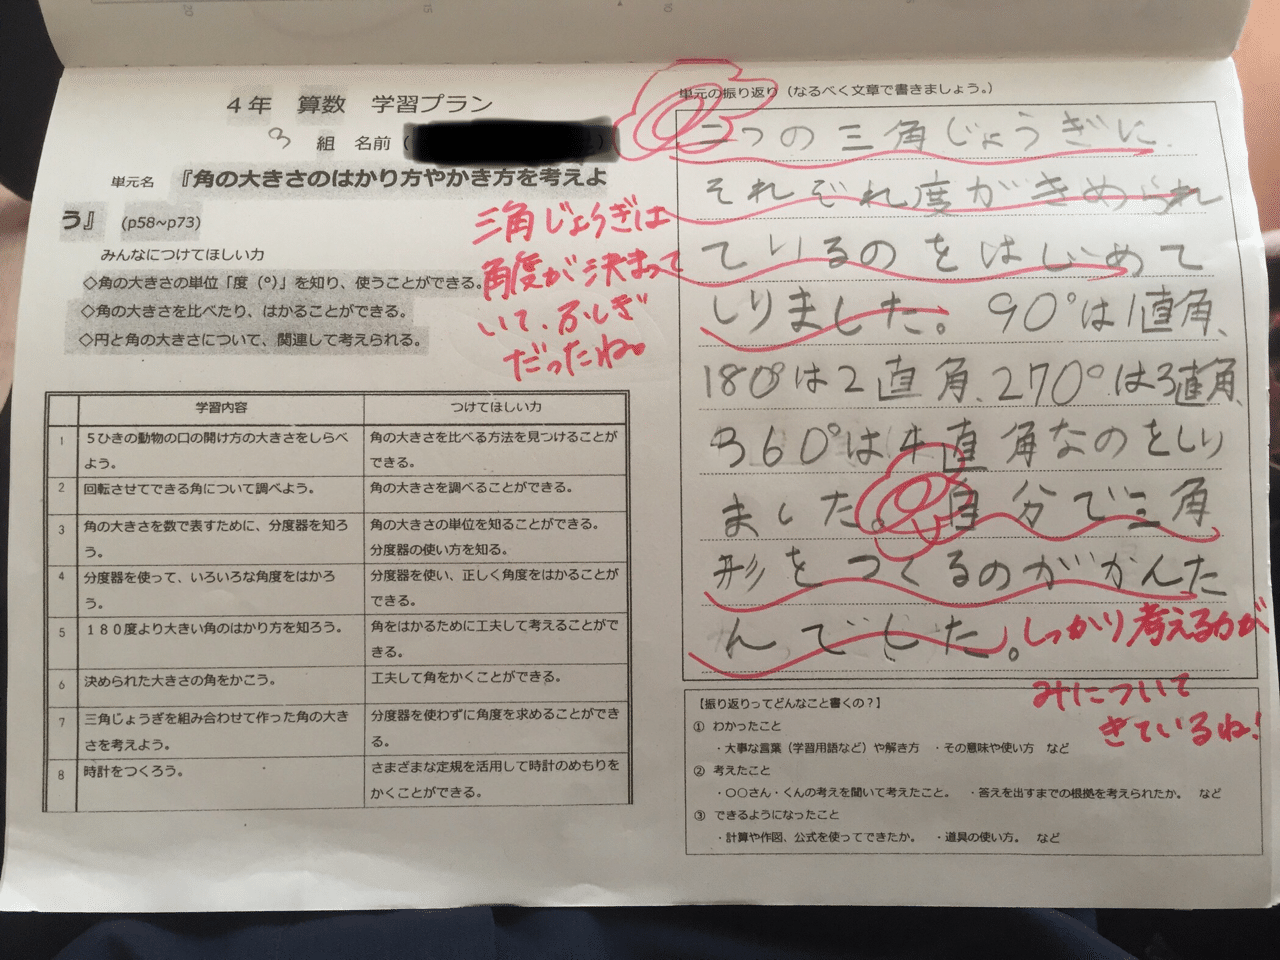 20
15
10
4年 算数 学習プラン
3 組 名前(
単元名 『角の大きさのはかり方やかき方を考えよ
う』 (p58~p73)
みんなにつけてほしい力
◇角の大きさの単位「度(°)」を知り、使うことができる。
◇角の大きさを比べたり、はかることができる。
◇円と角の大きさについて、関連して考えられる。
三角じょうぎは
角度が決まって
いて、ふしぎ
だったね。
学習内容 つけてほしい力
1 5ひきの動物の口の開け方の大きさをしらべ 角の大きさを比べる方法を見つけることが
よう。 できる。
2 回転させてできる角について調べよう。 角の大きさを調べることができる。
3 角の大きさを数で表すために、分度器を知ろ 角の大きさの単位を知ることができる。
う。 分度器の使い方を知る。
4 分度器を使って、いろいろな角度をはかろ 分度器を使い、正しく角度をはかることが
う。 できる。
5 180度より大きい角のはかり方を知ろう。 角をはかるために工夫して考えることがで
きる。
6 決められた大きさの角をかこう。 工夫して角をかくことができる。
7 三角じょうぎを組み合わせて作った角の大き 分度器を使わずに角度を求めることができ
さを考えよう。 る。
8 時計をつくろう。 さまざまな定規を活用して時計のめもりを
かくことができる。
単元の振り返り(なるべく文章で書きましょう。)
二つの三角じょうぎに、
それぞれ度がきめられ
ているのをはじめて
しりました。90°は1直角、
180°は2直角、270°は3直角、
360°は4直角なのをしり
ました。自分で三角
形をつくるのがかんた
んでした。
しっかり考える力が
みについて
きているね!
【振り返りってどんなこと書くの?】
① わかったこと
・大事な言葉(学習用語など)や解き方 ・その意味や使い方 など
② 考えたこと
・〇〇さん・くんの考えを聞いて考えたこと。 ・答えを出すまでの根拠を考えられたか。 など
③ できるようになったこと
・計算や作図、公式を使ってできたか。 ・道具の使い方。 など